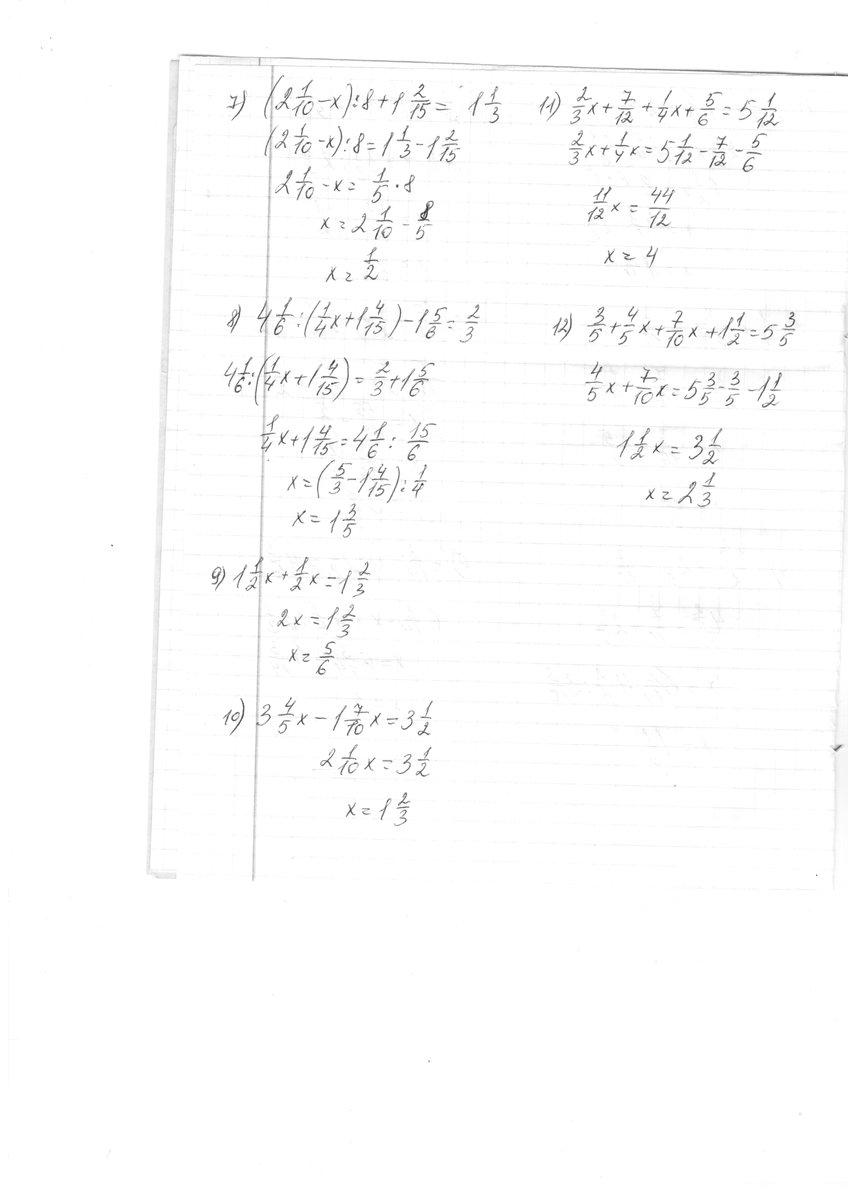 7) (2 1/10 - x) : 8 + 1 2/15 = 1 1/3
(2 1/10 - x) : 8 = 1 1/3 - 1 2/15
2 1/10 - x = 1/5 · 8
x = 2 1/10 - 8/5
x = 1/2
8) 4 1/6 : (1/4 x + 1 4/15) - 1 5/6 = 2/3
4 1/6 : (1/4 x + 1 4/15) = 2/3 + 1 5/6
1/4 x + 1 4/15 = 4 1/6 : 15/6
x = (5/3 - 1 4/15) : 1/4
x = 1 3/5
9) 1 1/2 x + 1/2 x = 1 2/3
2x = 1 2/3
x = 5/6
10) 3 4/5 x - 1 7/10 x = 3 1/2
2 1/10 x = 3 1/2
x = 1 2/3
11) 2/3 x + 7/12 + 1/4 x + 5/6 = 5 1/12
2/3 x + 1/4 x = 5 1/12 - 7/12 - 5/6
11/12 x = 44/12
x = 4
12) 3/5 + 4/5 x + 7/10 x + 1 1/2 = 5 3/5
4/5 x + 7/10 x = 5 3/5 - 3/5 - 1 1/2
1 1/2 x = 3 1/2
x = 2 1/3